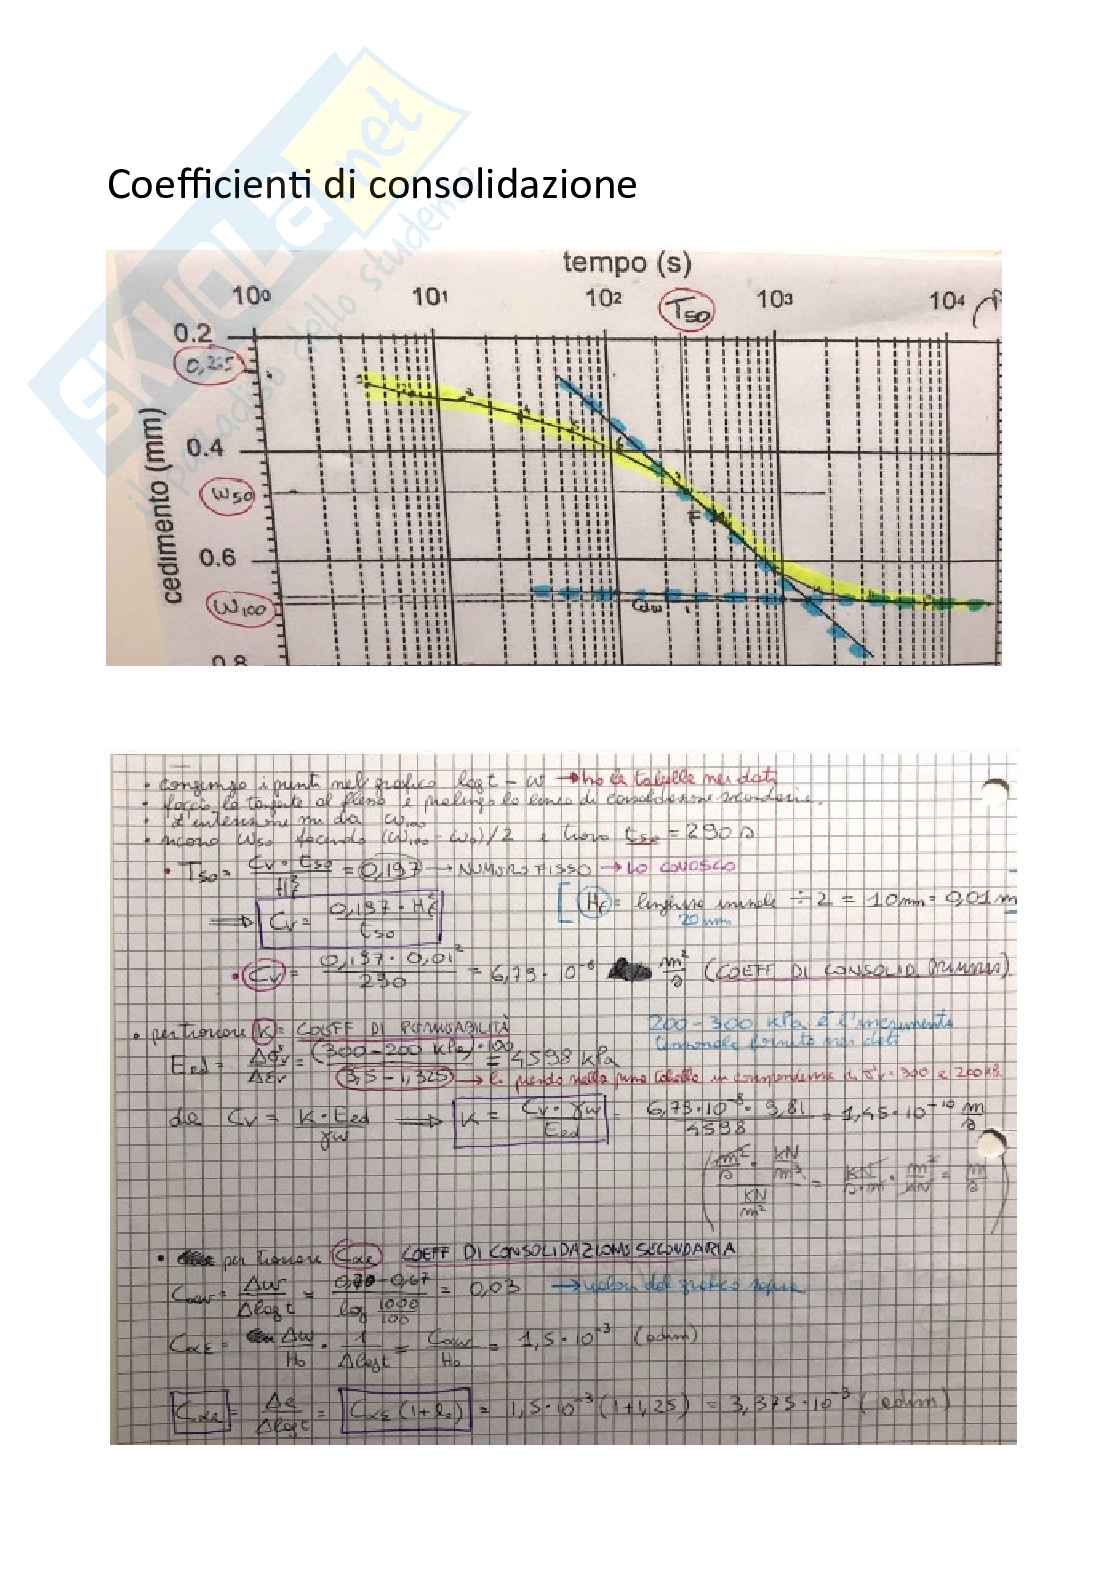 SKUOLA.net
il paradiso dello studente
Coefficienti di consolidazione
tempo (s)
10⁰ 10¹ 10² T50 10³ 10⁴
0.2
0,265
0.4
W50
0.6
W100
0.8
cedimento (mm)
Cαw
• congiungo i punti nel grafico logt - w → ho la tabella nei dati
• faccio la tangente al flesso e prolungo la linea di consolidazione secondaria.
• l'intersezione mi dà W100
• ricavo W50 facendo (W100 - W0)/2 e trovo t50 = 290 s
• T50 = Cv · t50 / H²f = 0,197 → NUMERO FISSO → LO CONOSCO
⇒ Cv = 0,197 · H²f / t50 [ Hf = lunghezza iniziale ÷ 2 = 10 mm = 0,01 m
20 mm
• Cv = 0,197 · 0,01² / 290 = 6,79 · 10⁻⁸ m²/s (COEFF DI CONSOLID PRIMARIA)
• per trovare K = COEFF DI PERMEABILITÀ
200-300 kPa è l'incremento tensionale fornito nei dati
Eed = Δσ'v / Δεv = (300-200 kPa) · 100 / (3,5 - 1,325) = 4598 kPa
→ lo prendo nella prima tabella in corrispondenza di σ'v = 300 e 200 kPa
da Cv = K · Eed / γw ⇒ K = Cv · γw / Eed = 6,79 · 10⁻⁸ · 9,81 / 4598 = 1,45 · 10⁻¹⁰ m/s
( m²/s · kN/m³ / kN/m² = kN/s·m · m²/kN = m/s )
• per trovare Cαe COEFF DI CONSOLIDAZIONE SECONDARIA
Cαw = Δw / Δlogt = 0,70 - 0,67 / log 1000/100 = 0,03 → valori dal grafico sopra
Cαε = Δw / H0 · 1 / Δlogt = Cαw / H0 = 1,5 · 10⁻³ (adim)
Cαe = Δe / Δlogt = Cαε (1+e0) = 1,5 · 10⁻³ (1+1,25) = 3,375 · 10⁻³ (adim)